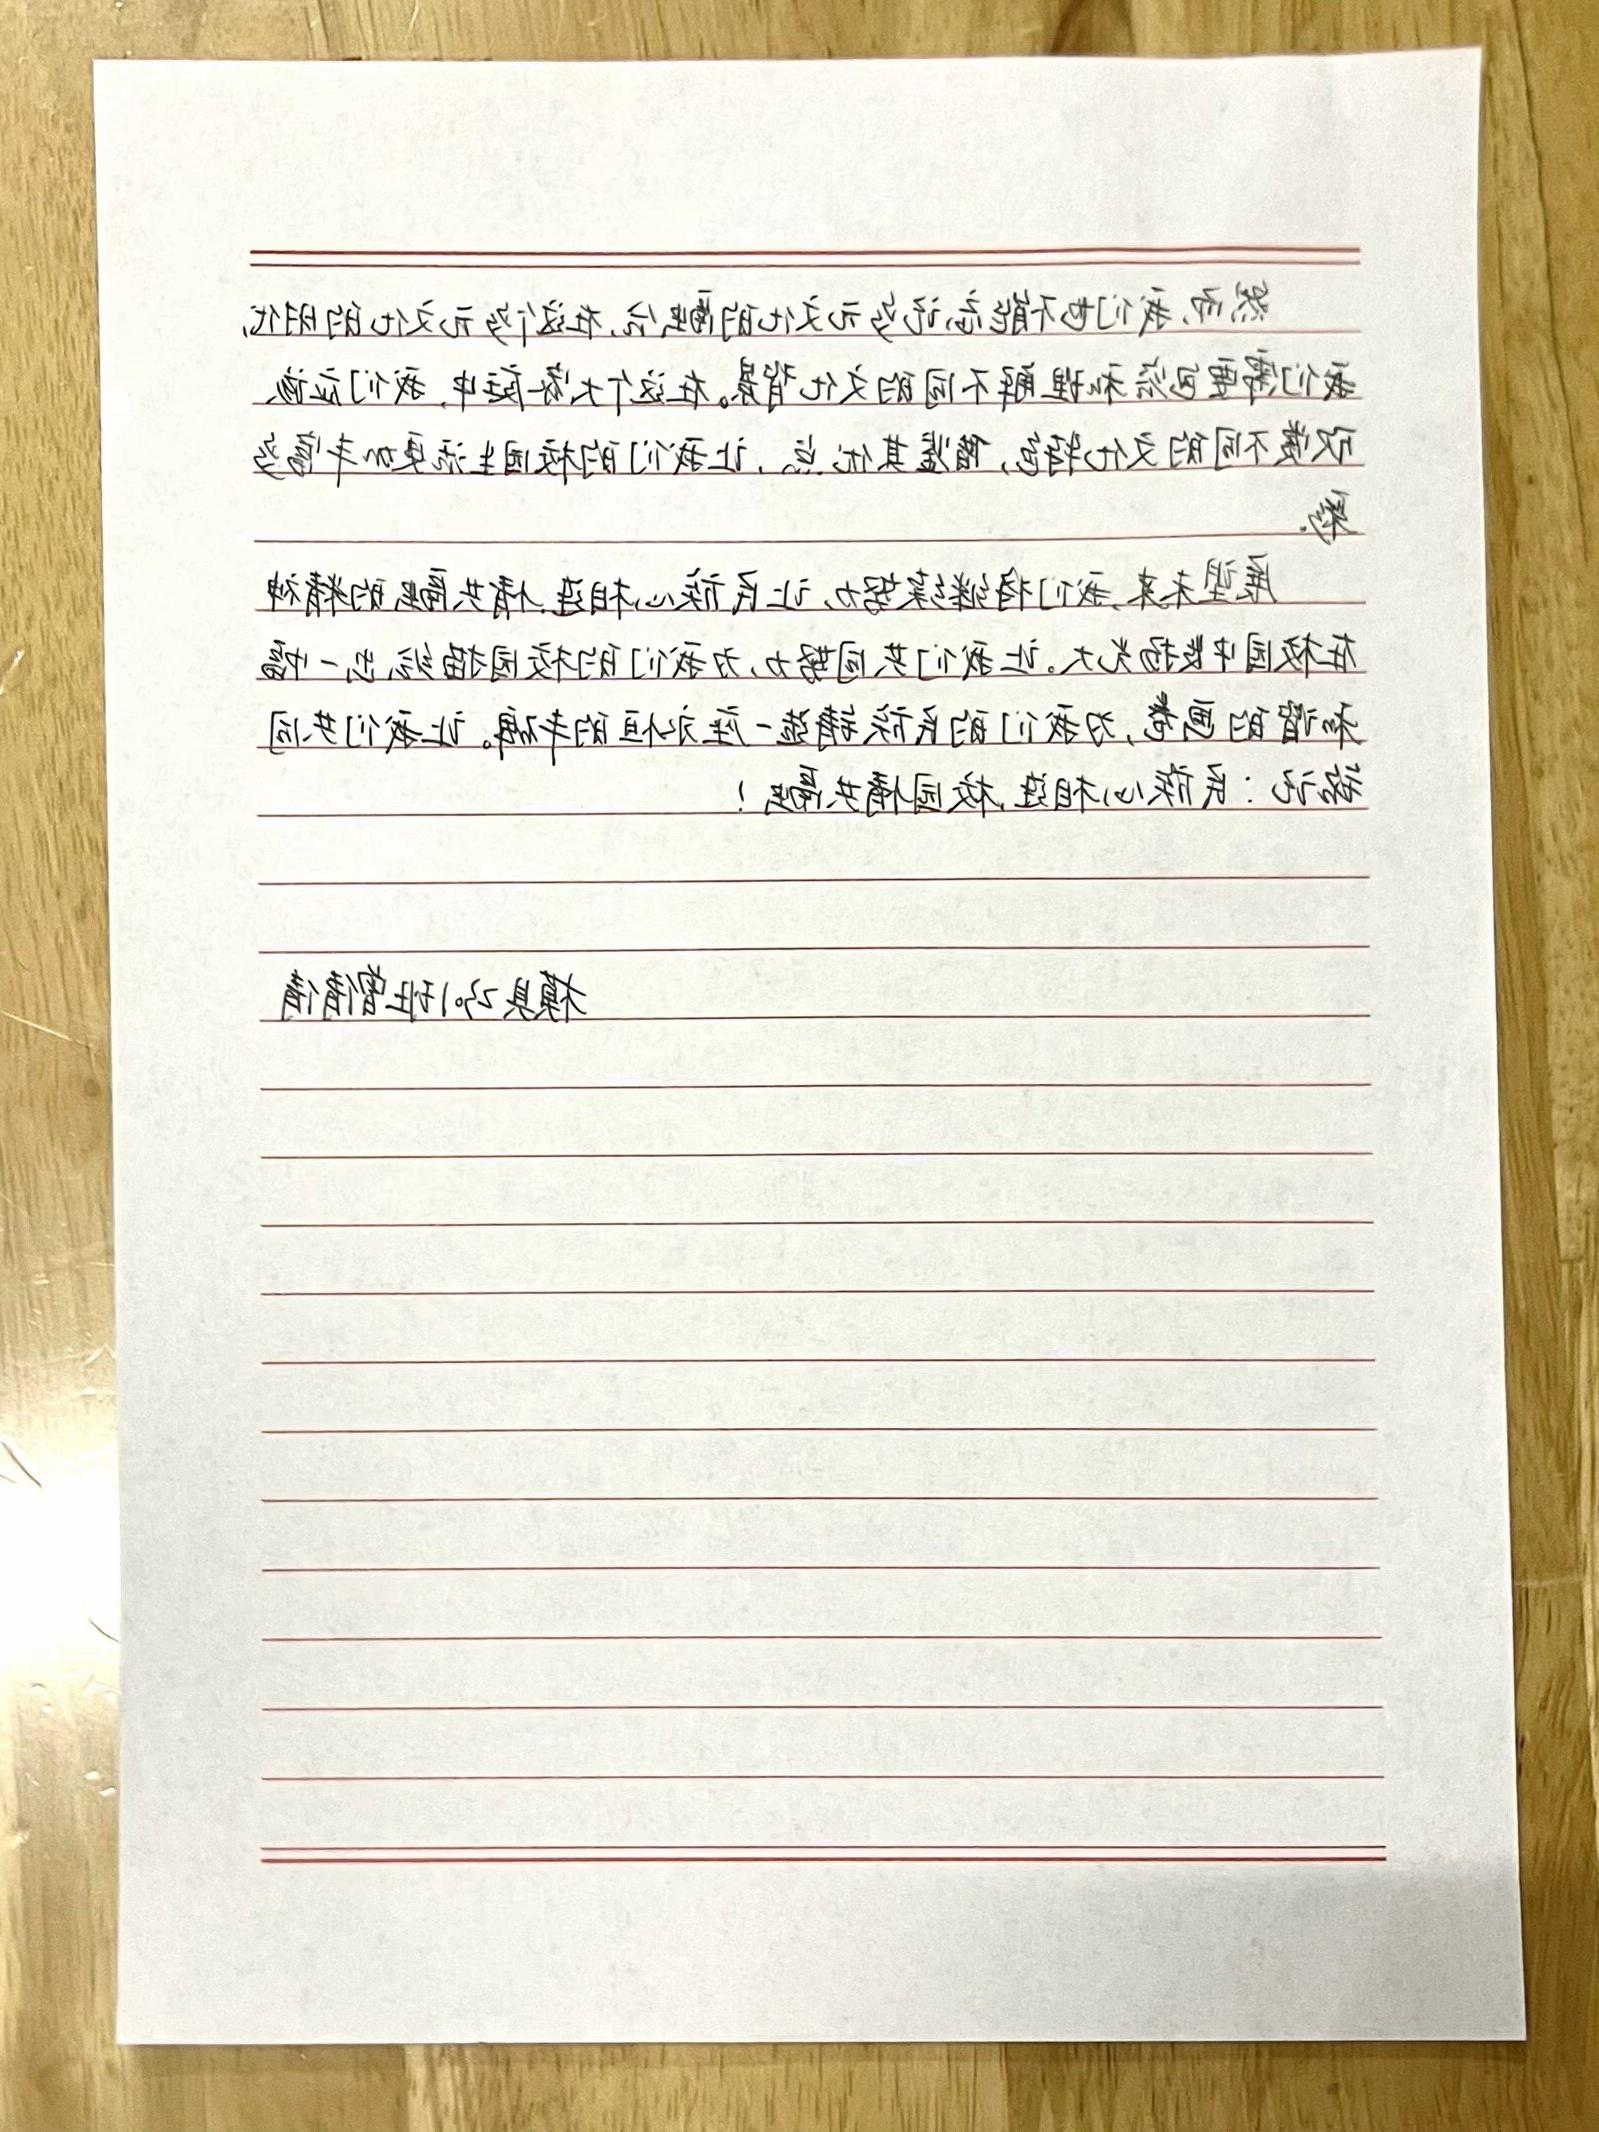 然而,我们也不能忘记多元文化的融合,在这个多元文化的时代,
我们需要包容和理解不同的文化背景。在这个大家庭中,我们应该
欣赏不同的文化特色,借鉴其优点,让我们的校园生活更加丰富多
彩.
展望未来,我们将继续努力,让民族心相连,情共融的精神
在校园中发扬光大。让我们共同努力,为我们的校园描绘出一幅
和谐的画卷,为我们的民族铸造一座永恒的丰碑。让我们共同
铭记:民族心相连,校园情共融!
模具2301班曾倩倩